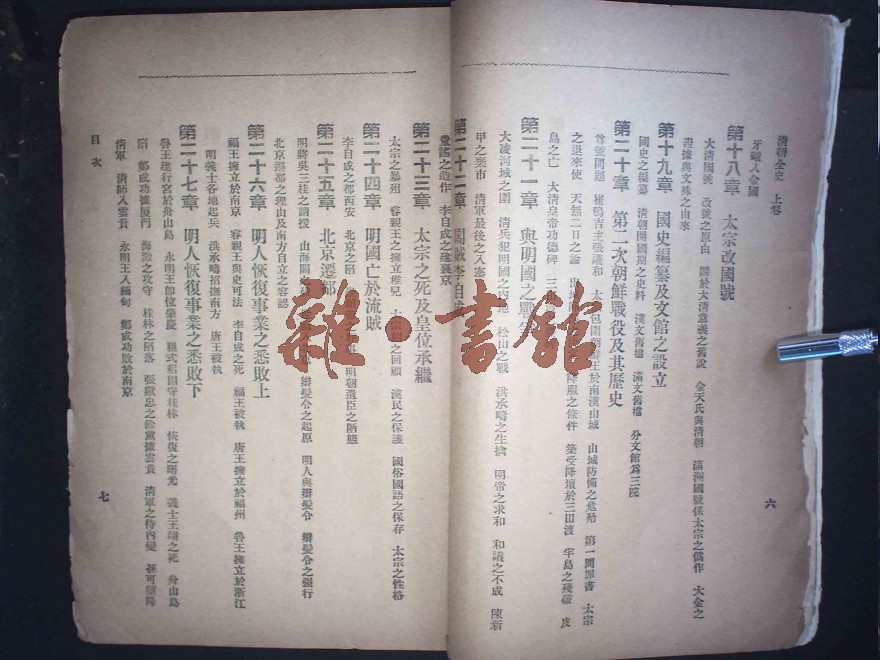 清朝全史 上卷
牙礮入金國
第十八章 太宗改國號
大清國號 改號之原由 關於大清意義之舊說 金天氏與清朝 滿洲國號係太宗之僞作 大金之
證據與文殊之由來
第十九章 國史編纂及文館之設立
國史之編纂 清朝開國期之史料 漢文舊檔 滿文舊檔 分文館爲三院
第二十章 第二次朝鮮戰役及其歷史
尊號問題 崔鳴吉主張議和 太 包圍朝鮮王於南漢山城 山城防備之危殆 第一問罪書 太宗
之退來使 天無二日之論 出城 降服之條件 築受降壇於三田渡 半島之殘破 皮
島之亡 大清皇帝功德碑 三
第二十一章 與明國之戰
大凌河城之圍 清兵犯明國之內地 松山之戰 洪承疇之生擒 明帝之求和 和議之不成 陳新
甲之棄市 清軍最後之入塞
第二十二章 闖賊李自成
童謠之造作 李自成之建襄京
第二十三章 太宗之死及皇位承繼
太宗之暴殂 睿親王之擁立稚兒 太宗朝之回顧 漢民之保護 國俗國語之保存 太宗之性格
第二十四章 明國亡於流賊
李自成之都西安 北京之陷 明朝遺臣之陋態
第二十五章 北京遷都
明將吳三桂之請援 山海關之 辮髮令之起原 明人與辮髮令 辮髮令之強行
北京遷都之理由及南方自立之容認
第二十六章 明人恢復事業之悉敗上
福王擁立於南京 睿親王與史可法 李自成之死 福王被執 唐王擁立於福州 魯王擁立於浙江
明義士各地起兵 洪承疇招撫南方 唐王被執
第二十七章 明人恢復事業之悉敗下
魯王建行宮於舟山島 永明王卽位肇慶 瞿式耜固守桂林 恢復之曙光 義士王翊之死 舟山島
陷 鄭成功據厦門 海澄之攻守 桂林之陷落 張獻忠之餘黨據雲貴 清軍之待內變 孫可望降
清軍 清師入雲貴 永明王入緬甸 鄭成功敗於南京
目次
六
七
雜·書館